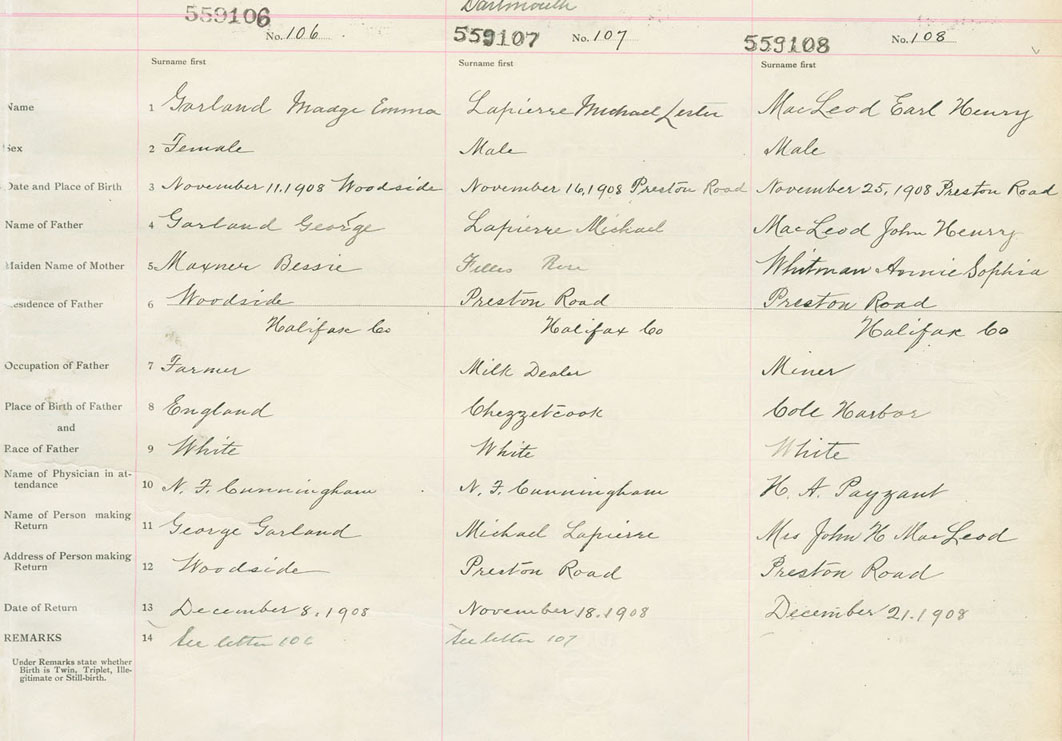 Dartmouth
559106 559107 559108
No. 106 No. 107 No. 108
Surname first Surname first Surname first
Name 1 Garland Madge Emma Lapierre Michael Lester MacLeod Earl Henry
Sex 2 Female Male Male
Date and Place of Birth 3 November 11, 1908 Woodside November 16, 1908 Preston Road November 25, 1908 Preston Road
Name of Father 4 Garland George Lapierre Michael MacLeod John Henry
Maiden Name of Mother 5 Maxner Bessie Filles Rose Whitman Annie Sophia
Residence of Father 6 Woodside Preston Road Preston Road
Halifax Co Halifax Co Halifax Co
Occupation of Father 7 Farmer Milk Dealer Miner
Place of Birth of Father 8 England Chezzetcook Cole Harbor
and
Race of Father 9 White White White
Name of Physician in at-
tendance 10 N. F. Cunningham N. F. Cunningham H. A. Payzant
Name of Person making
Return 11 George Garland Michael Lapierre Mrs John H MacLeod
Address of Person making
Return 12 Woodside Preston Road Preston Road
Date of Return 13 December 8, 1908 November 18, 1908 December 21, 1908
REMARKS 14 See letter 106 See letter 107
Under Remarks state whether
Birth is Twin, Triplet, Ille-
gitimate or Still-birth.